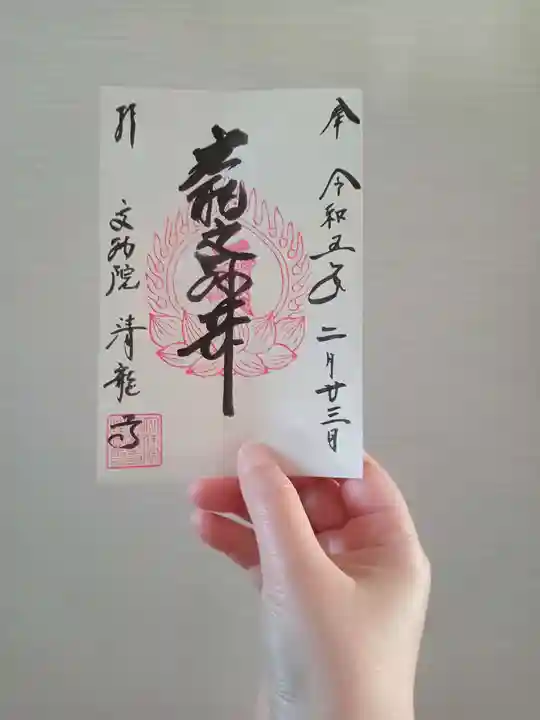 奉 令和五年 二月廿三日
文殊
拝 文殊院 清龍寺